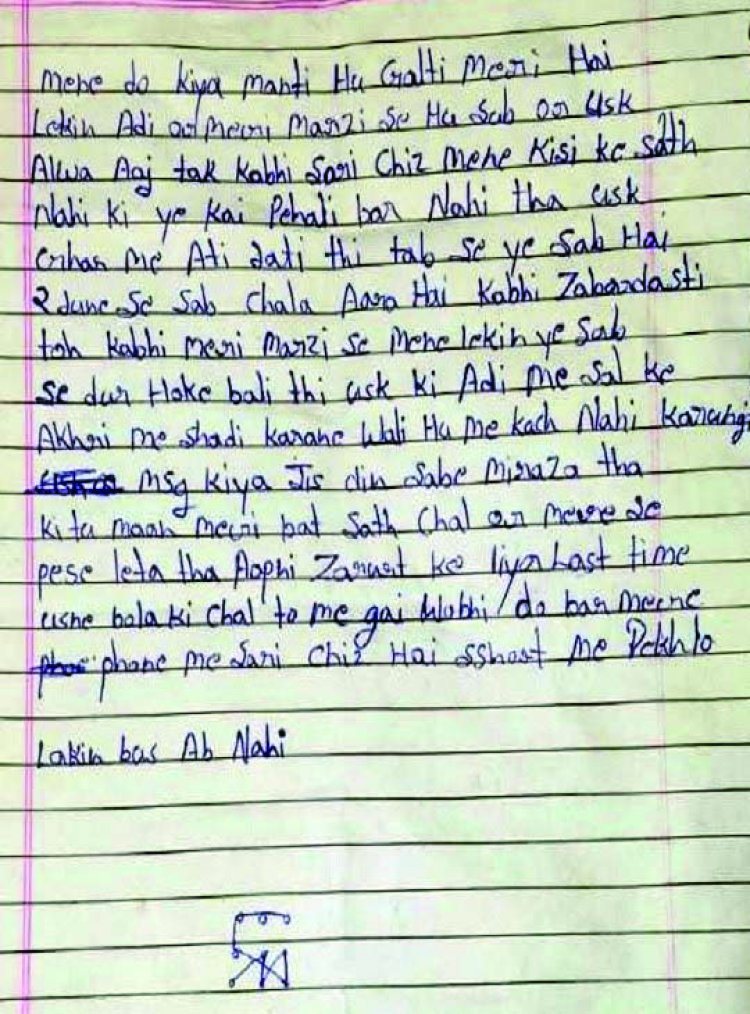 mene do kiya manti Hu Galti Meri Hai
Lekin Adi or merri Marzi se Hu Sab or Usk
Alwa Aaj tak Kabhi Sari Chiz Mene Kisi ke sath
Nahi Ki ye Kai Pehali bar Nahi tha usk
Me Ati Jati thi tab se ye Sab Hai
se Sab Chala Aara Hai Kabhi Zabardasti
toh Kabhi merri Marzi se Mene lekin ye Sab
se dur Hoke bali thi usk ki Adi me Sal ke
Akhri me shadi Karane Wali Hu me Kach Nahi Karungi
msg Kiya Jis din tha
ki tu maan merri bat Sath Chal or
pese leta tha Aaphi ke liya Last time
usne bola ki Chal to me gai Wobhi do bar
phone me Sari Chiz Hai sshost Me Dekhlo
Lakin bas Ab Nahi